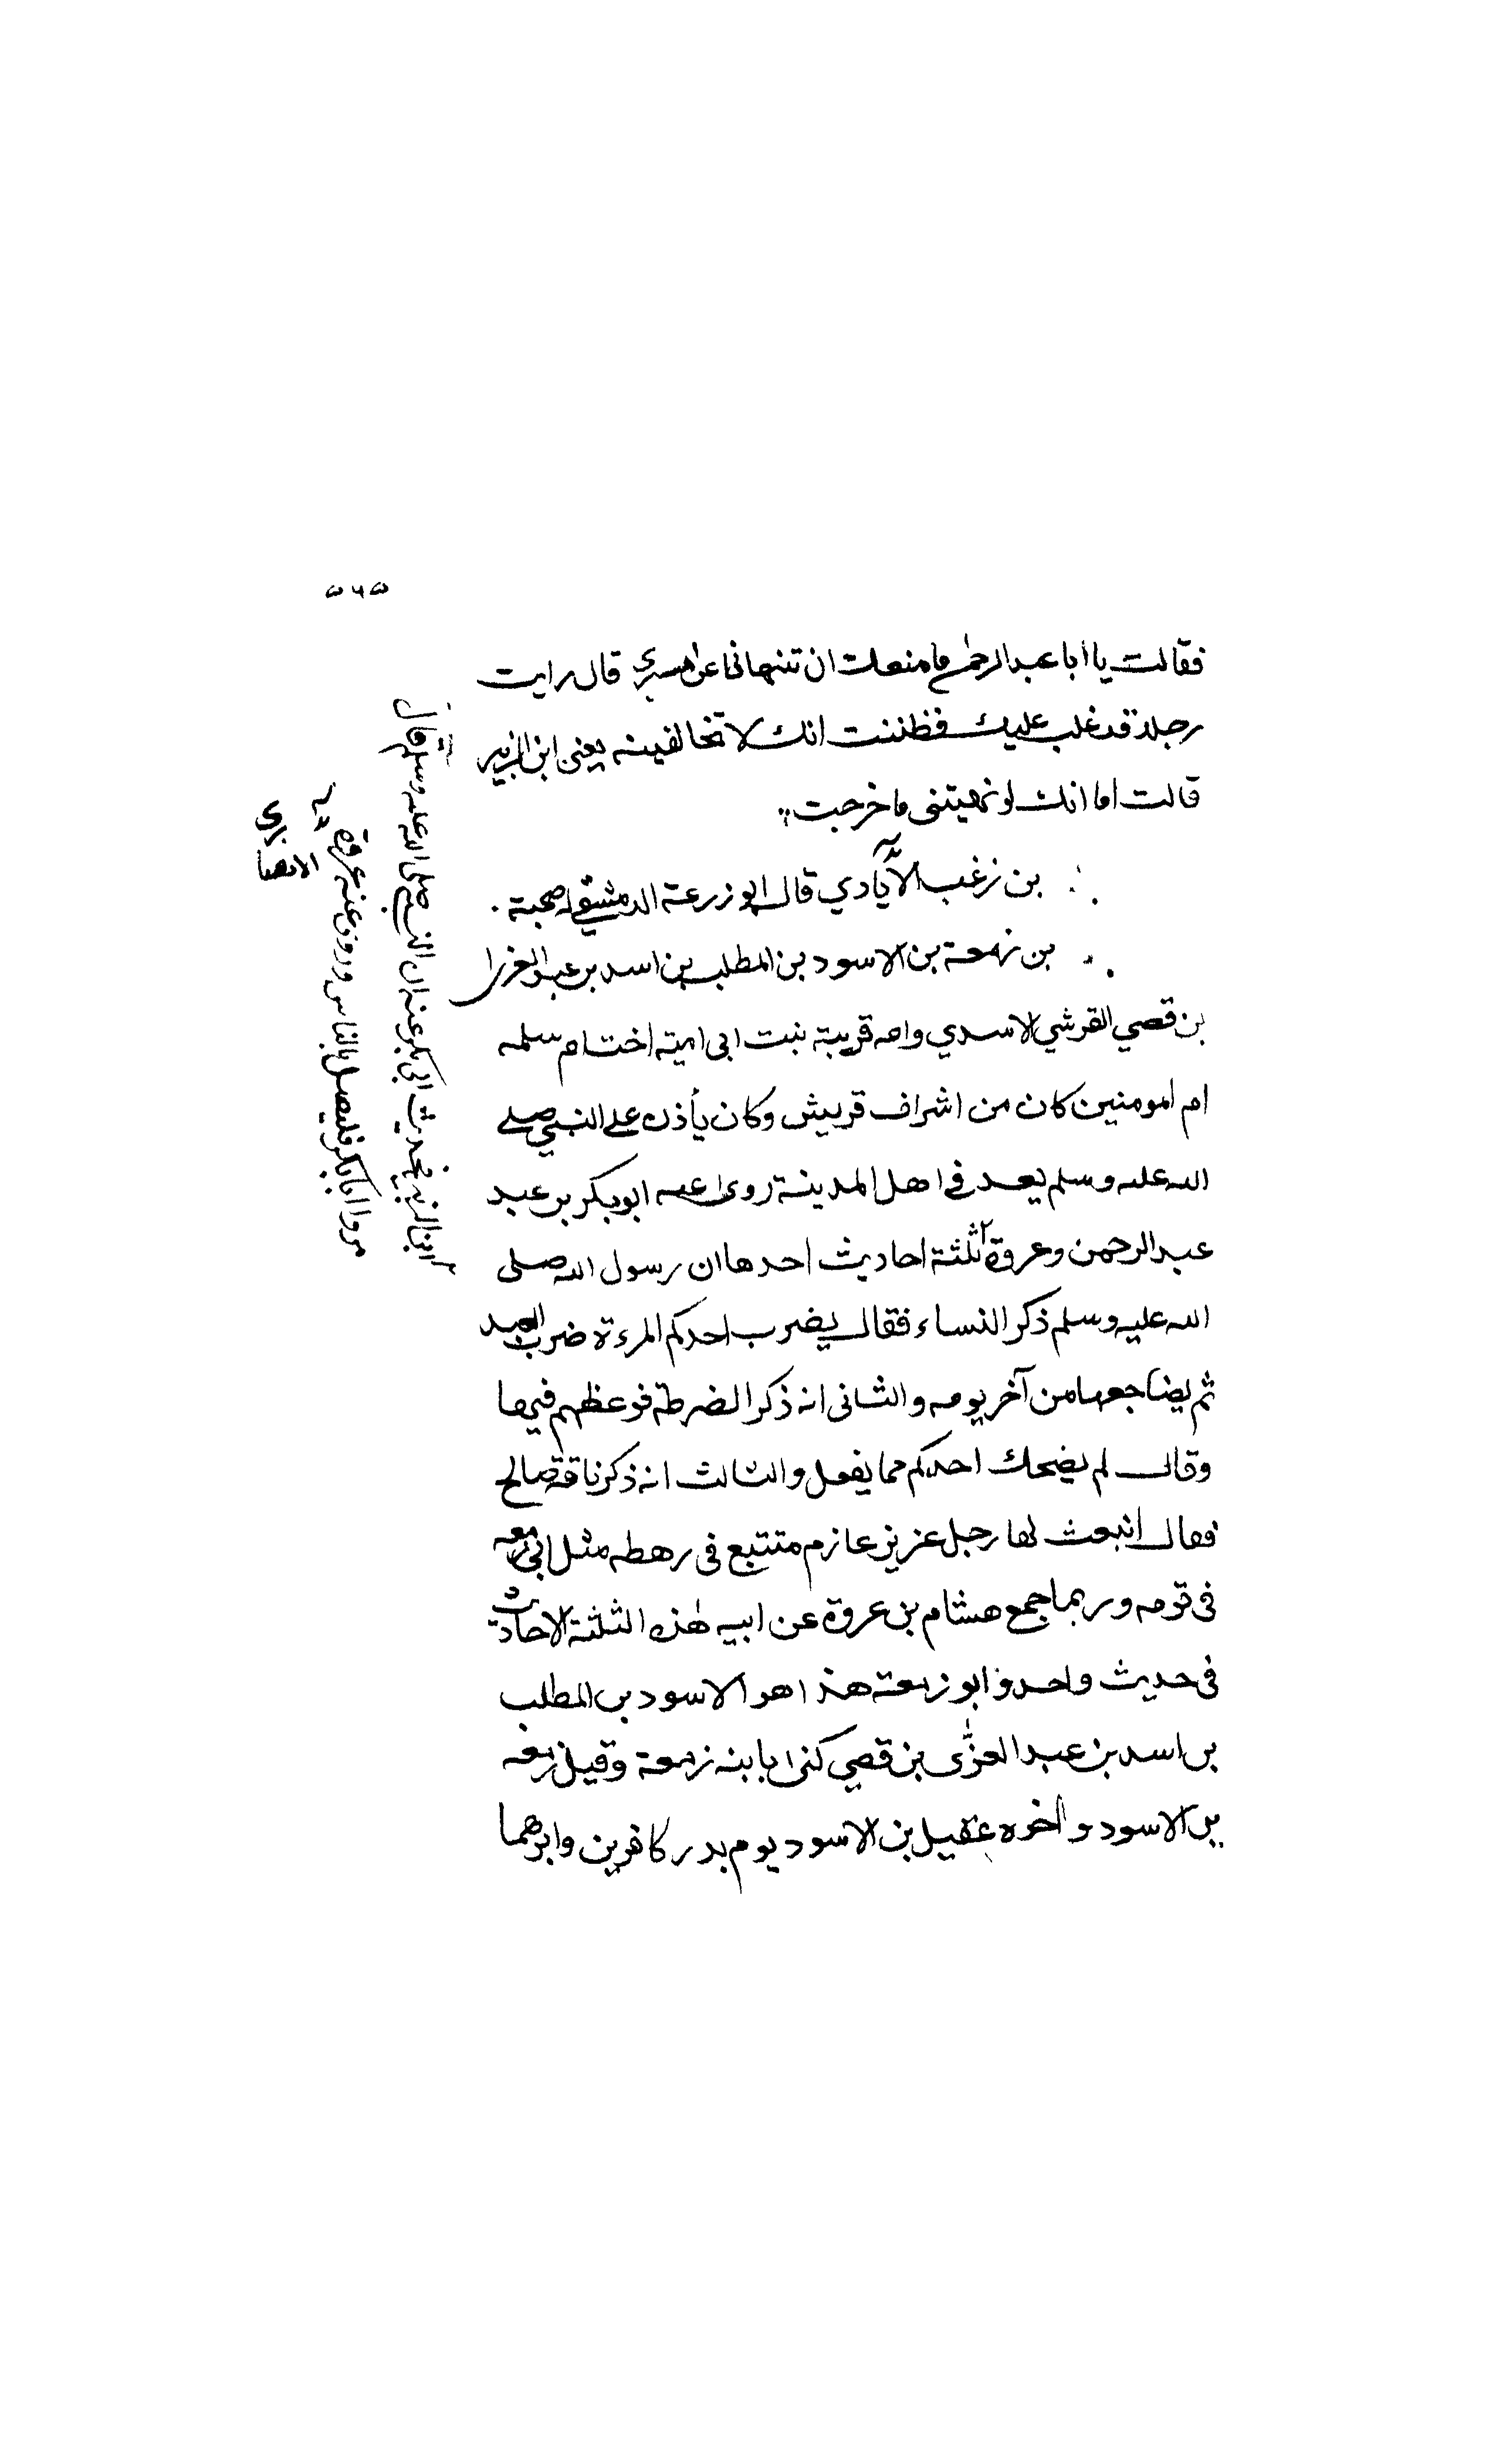 ۵۶۵
فقالت يا ابا عبد الرحمٰن ما منعك ان تنهانى عن مسيري قال رايت
رجلا قد غلب عليك فظننت انك لا تخالفينه يعنى ابن الزبير
قالت اما انك لو نهيتنى ما خرجت
بن زغب الايادي قال ابو زرعة الدمشقي له صحبة .
بن زمعة بن الاسود بن المطلب بن اسد بن عبد العزى
بن قصي القرشي الاسدي وامه قريبة بنت ابى امية اخت ام سلمه
ام المومنين كان من اشراف قريش وكان يأذن على النبي صلى
الله عليه وسلم يعد في اهل المدينة روى عنه ابو بكر بن عبد
عبد الرحمن وعروة ثلثة احاديث احدها ان رسول الله صلى
الله عليه وسلم ذكر النساء فقال يضرب احدكم المرءة ضرب العبد
ثم يضاجعها من آخر يومه والثانى انه ذكر الضرطة فوعظهم فيها
وقال لم يضحك احدكم مما يفعل والثالث انه ذكر ناقة صالح
فقال انبعث لها رجل عزيز عازم متتبع فى رهطه مثل ابى زمعه
فى قومه وربما جمع هشام بن عروة عن ابيه هٰذه الثلثة الاحاديث
فى حديث واحد وابو زمعة هذا هو الاسود بن المطلب
بن اسد بن عبد العزّٰى بن قصي كنى بابنه زمعة وقيل زمعه
بن الاسود وأخوه عقيل بن الاسود يوم بدر كافرين وابوهما
ابن الزبير فحديث ابى بكر عنه ان النبي صلى الله عليه وسلم قال
مروا ابا بكر فليصل بالناس وروى عنه عروة
الانصاري